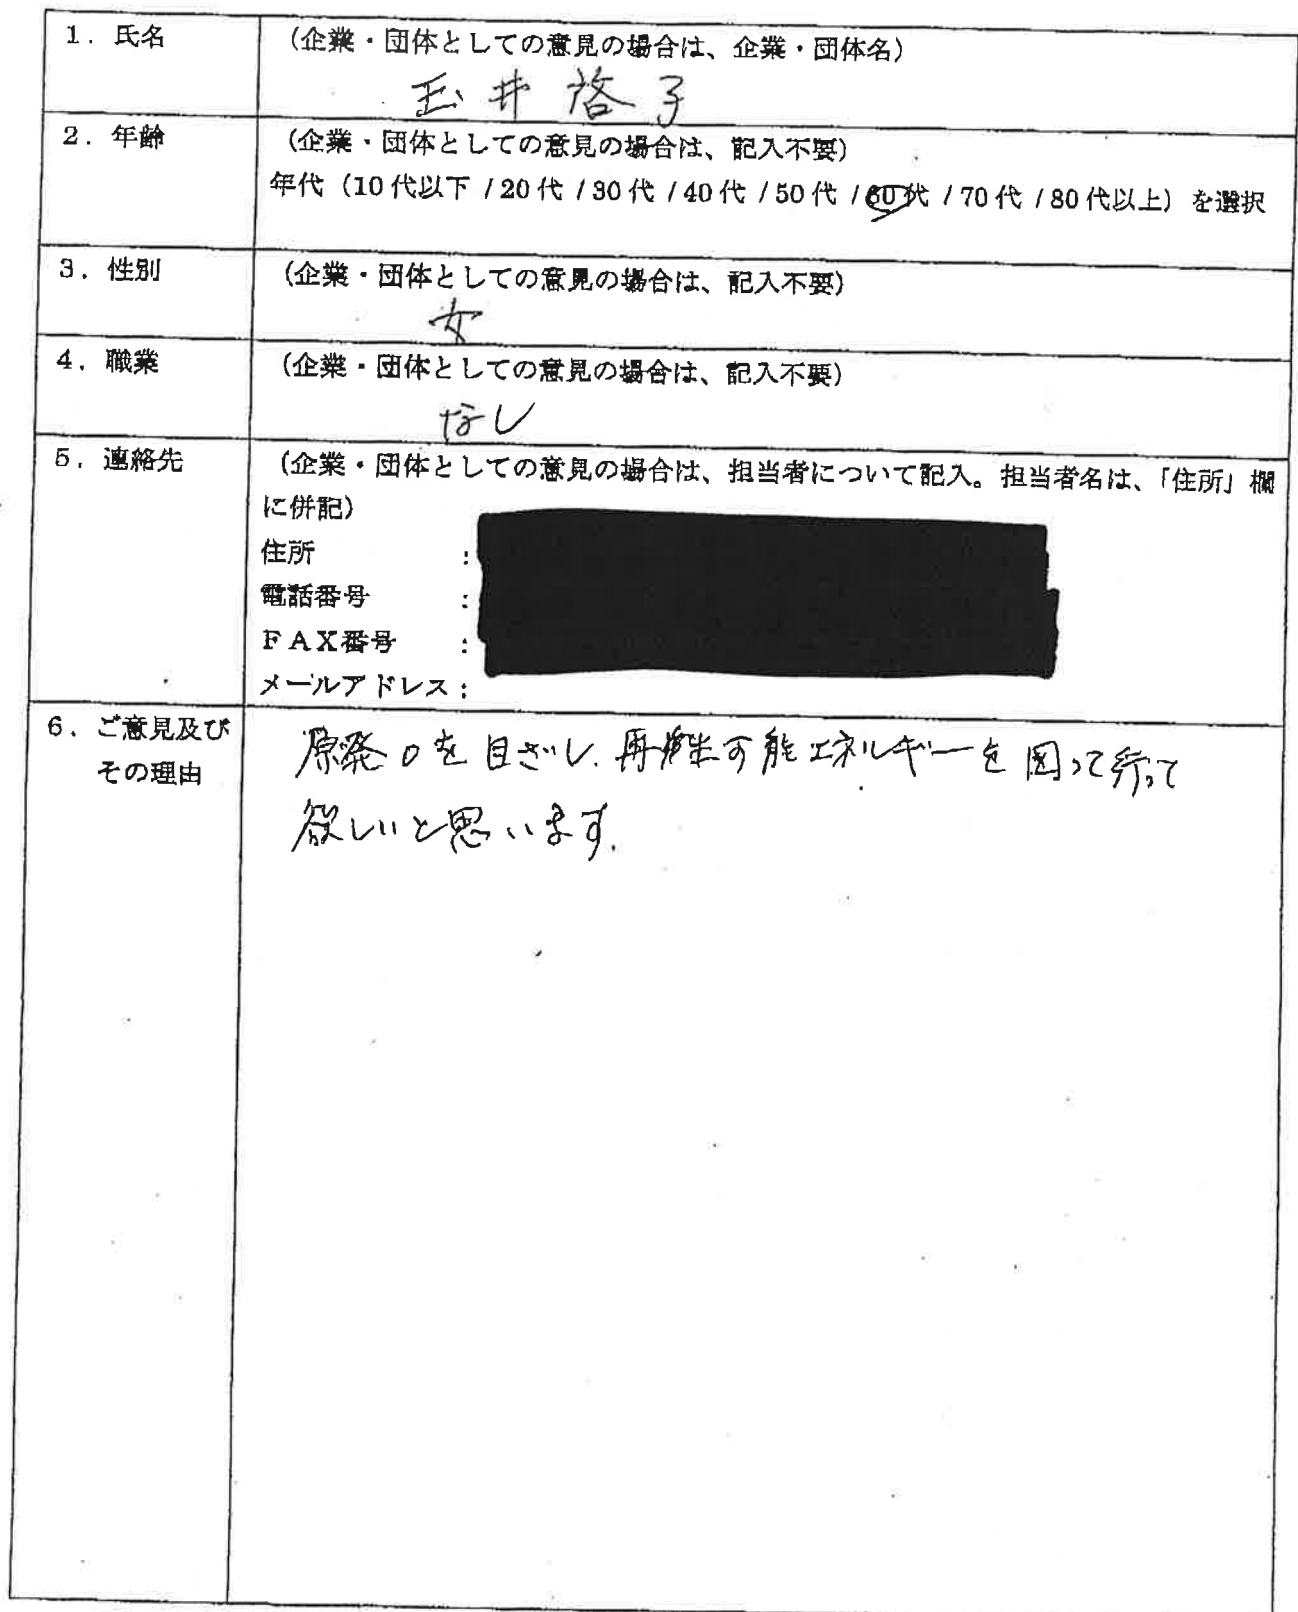 1．氏名
（企業・団体としての意見の場合は、企業・団体名）
玉井 啓子
2．年齢
（企業・団体としての意見の場合は、記入不要）
年代（10代以下 / 20代 / 30代 / 40代 / 50代 / 60代 / 70代 / 80代以上）を選択
3．性別
（企業・団体としての意見の場合は、記入不要）
女
4．職業
（企業・団体としての意見の場合は、記入不要）
なし
5．連絡先
（企業・団体としての意見の場合は、担当者について記入。担当者名は、「住所」欄
に併記）
住所 ：
電話番号 ：
ＦＡＸ番号 ：
メールアドレス：
6．ご意見及び
その理由
原発0を目ざし、再生可能エネルギーを図って行って
欲しいと思います。